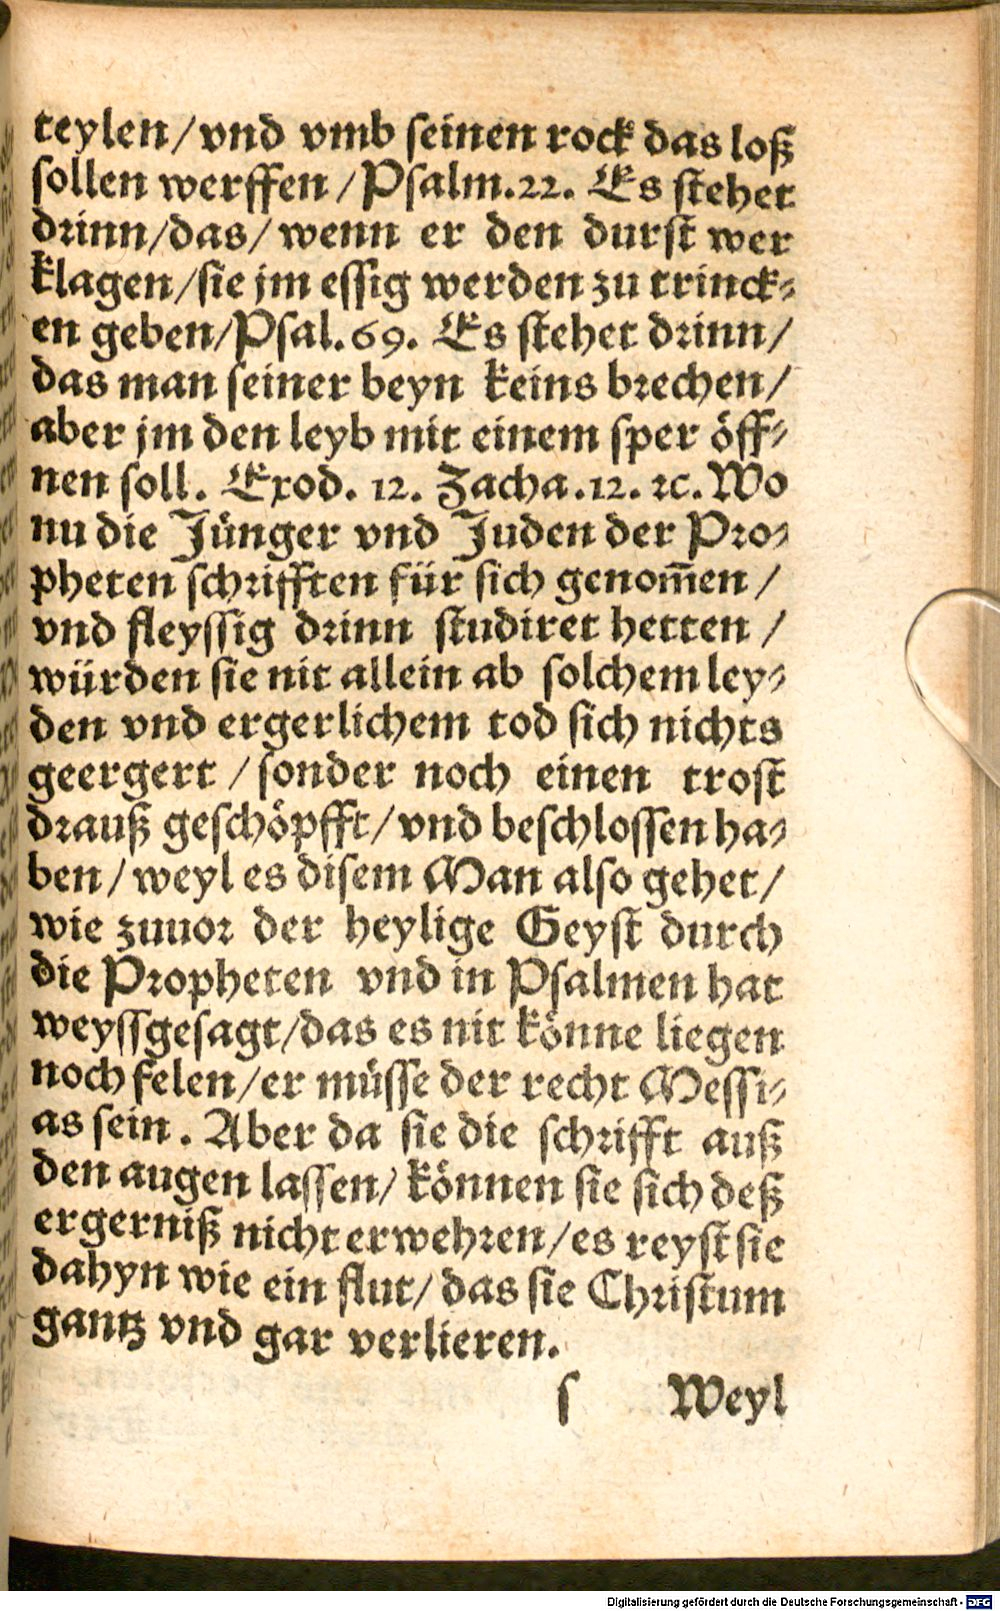 teylen/vnd vmb seinen rock das loß
sollen werffen/Psalm.22. Es stehet
drinn/das/wenn er den durst wer
klagen/sie jm essig werden zu trinck⸗
en geben/Psal.69. Es stehet drinn/
das man seiner beyn keins brechen/
aber jm den leyb mit einem sper öff⸗
nen soll. Exod. 12. Zacha.12. ꝛc. Wo
nu die Jünger vnd Juden der Pro⸗
pheten schrifften für sich genom̄en/
vnd fleyssig drinn studiret hetten/
würden sie nit allein ab solchem ley⸗
den vnd ergerlichem tod sich nichts
geergert/sonder noch einen trost
drauß geschöpfft/vnd beschlossen ha⸗
ben/weyl es disem Man also gehet/
wie zuuor der heylige Geyst durch
die Propheten vnd in Psalmen hat
weyssgesagt/das es nit könne liegen
noch felen/er müsse der recht Messi⸗
as sein. Aber da sie die schrifft auß
den augen lassen/können sie sich deß
ergerniß nicht erwehren/es reyst sie
dahyn wie ein flut/das sie Christum
gantz vnd gar verlieren.
s Weyl
Digitalisierung gefördert durch die Deutsche Forschungsgemeinschaft - DFG